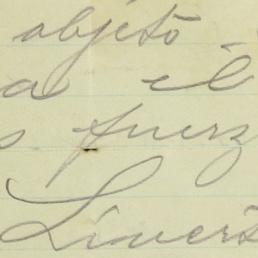 objeto
a el
s fuerz
Liners